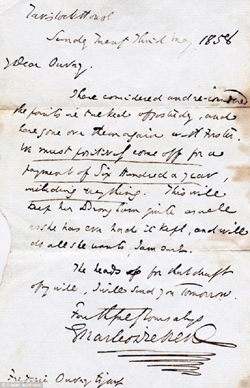 Tavistock House
Sunday Twenty Third May 1858
My Dear Ouvry.
I have considered and re-considered
the points marked opposite, and
have gone over them again with Forster.
We must positively come off for a
payment of Six Hundred a year,
including everything. This will
keep her Brougham quite as well
as she has ever had it kept, and will
do all she wants, I am sure.
The heads for that draft
of my will, I will send you tomorrow.
Faithfully Yours always
Charles Dickens
Frederic Ouvry Esquire